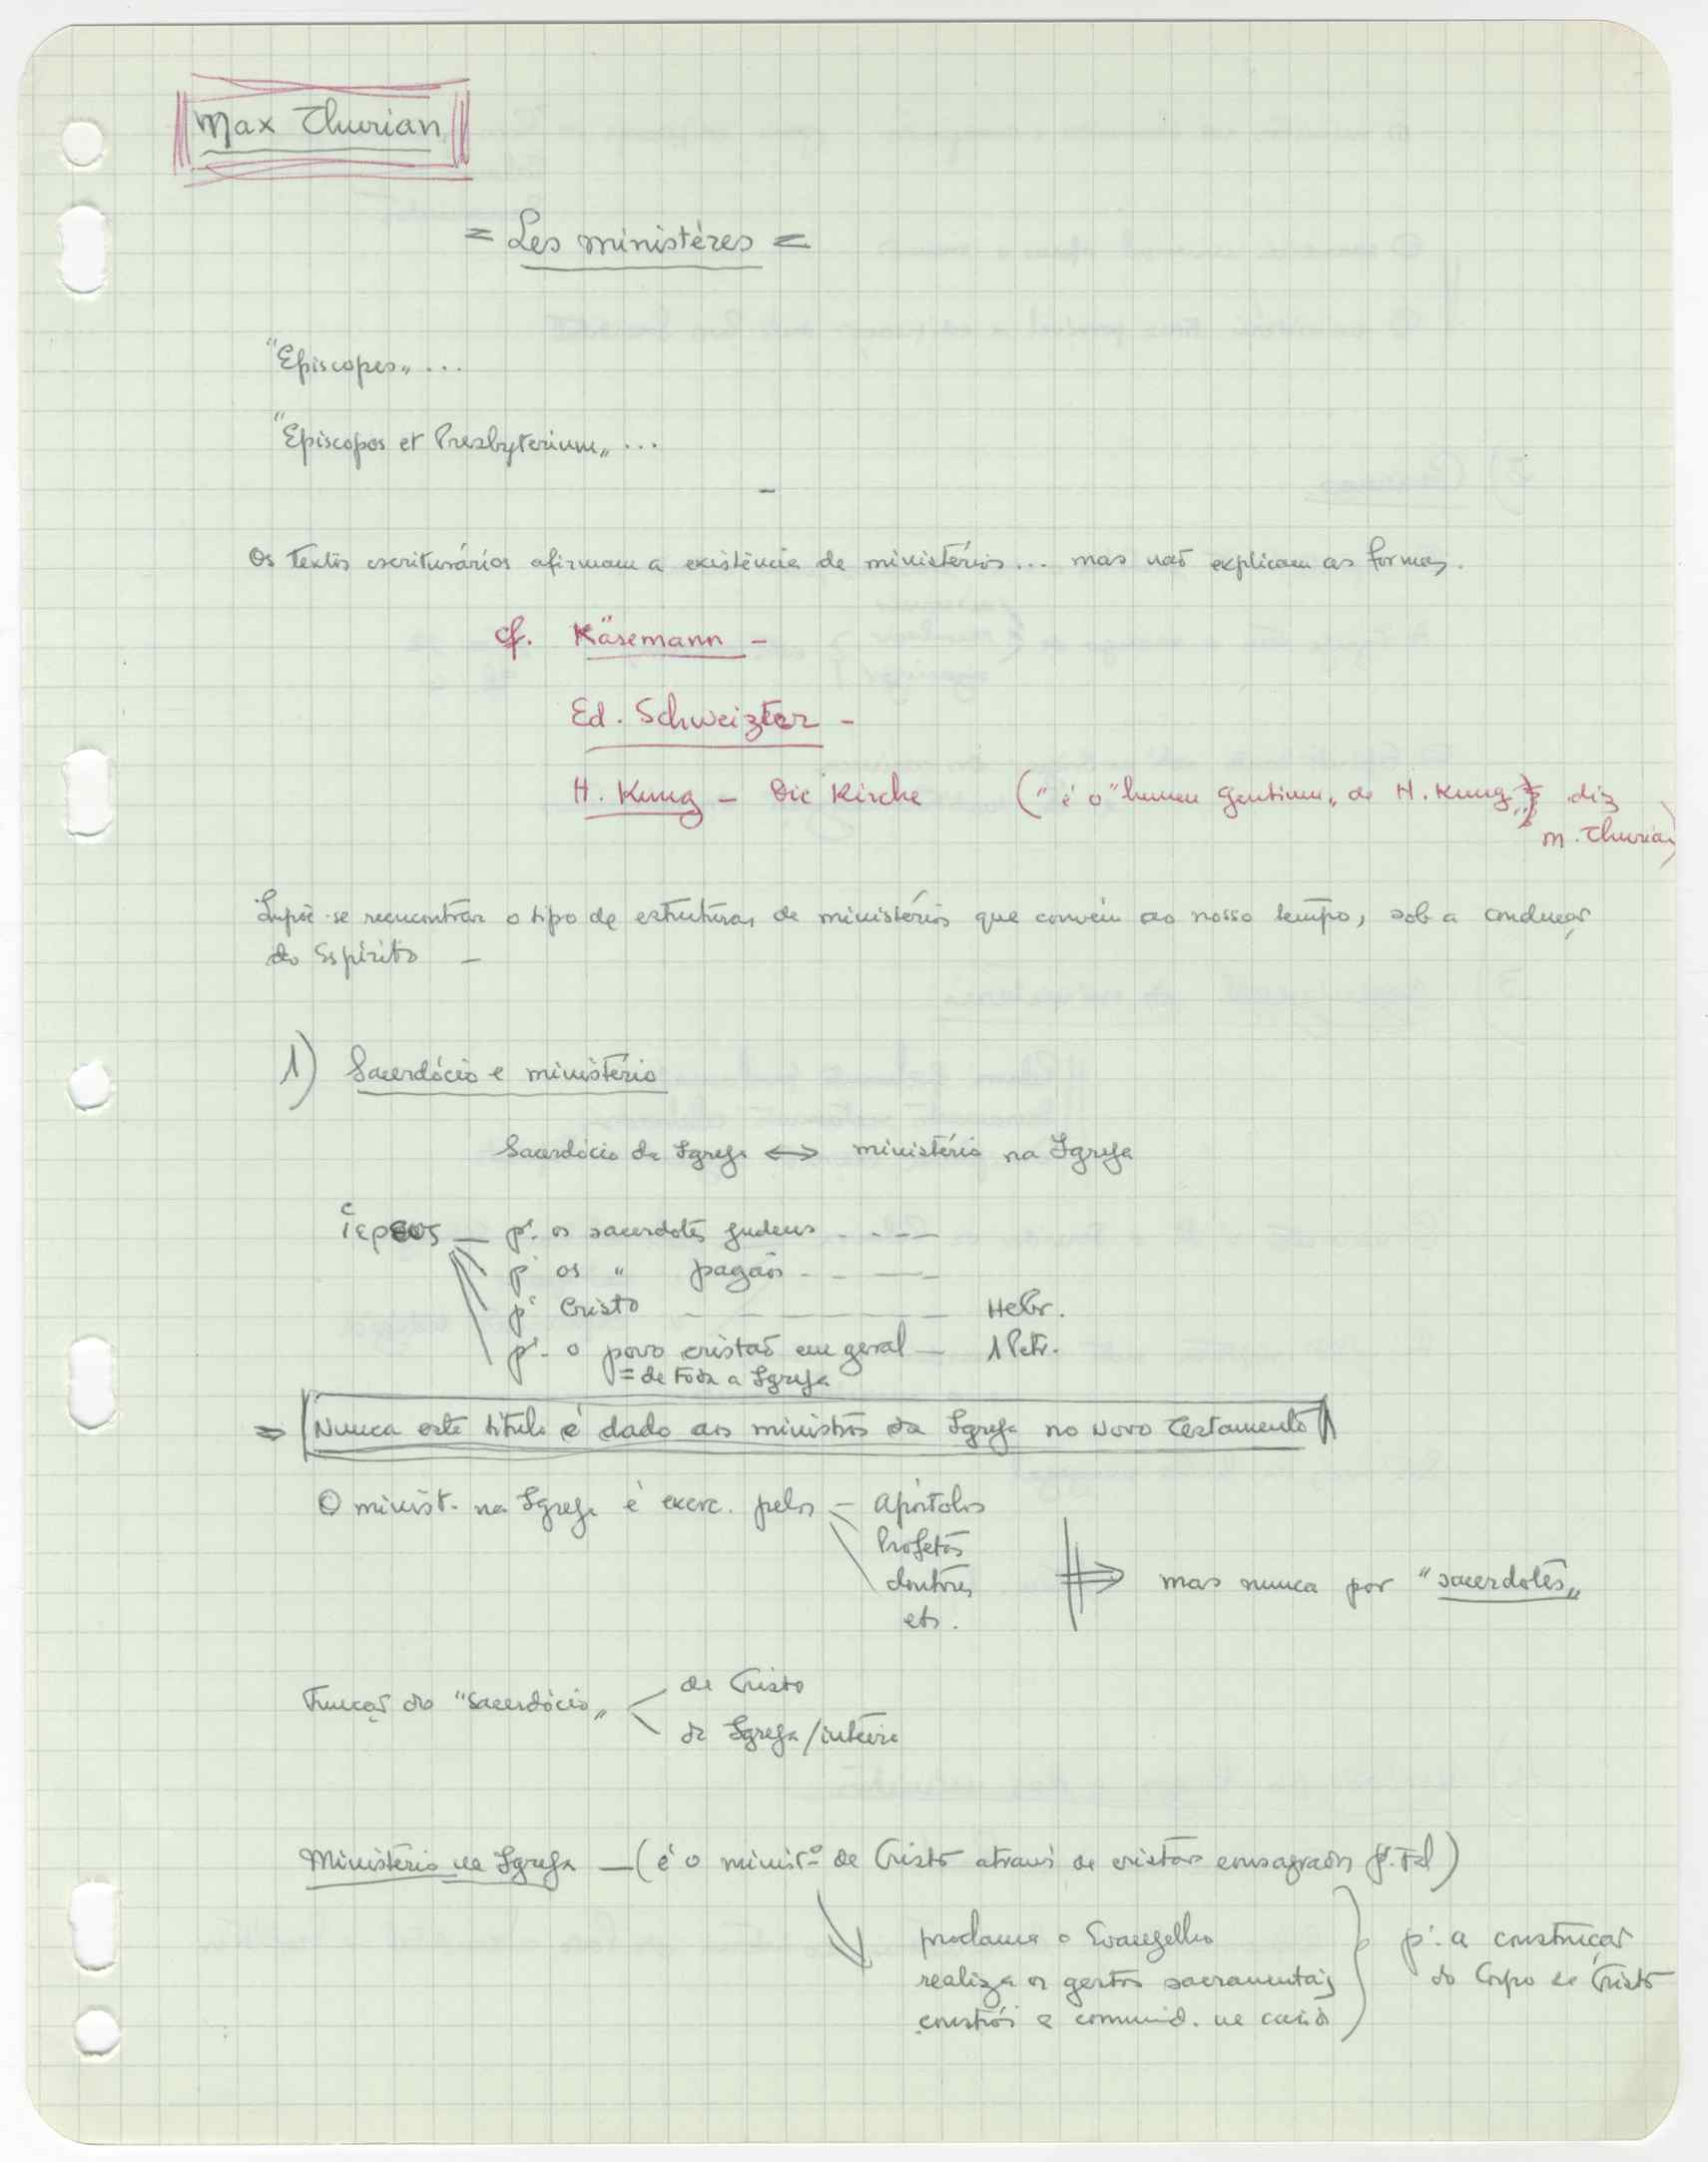 Max Thurian
= Les ministéres =
"Episcopes„ ...
"Episcopos et Presbyterium„ ...
–
Os textos escriturários afirmam a existência de ministérios... mas não explicam as formas.
cf. Käsemann –
Ed. Schweizter –
H. Kung – Die Kirche ("é o "lumen Gentium„ de H. Kung„ diz
M. Thurian)
Supõe-se reencontrar o tipo de estruturas de ministérios que convém ao nosso tempo, sob a condução
do Espírito –
1) Sacerdócio e ministério
Sacerdócio da Igreja ↔ ministério na Igreja
ἱερεος — pª os sacerdotes judeus - - - -
pª os " pagãos - - - -
pª Cristo - - - - Hebr.
pª o povo cristão em geral — 1 Petr.
= de toda a Igreja
⇒ Nunca este título é dado aos ministros da Igreja no Novo Testamento
O minist. na Igreja é exerc. pelos — Apóstolos
Profetas
doutores
etc.
⇒ mas nunca por "sacerdotes„
Função do "sacerdócio„ < de Cristo
da Igreja/inteira
Ministério na Igreja — (é o minist.º de Cristo através de cristãos consagrados pª tal)
proclama o Evangelho
realiza os gestos sacramentais
constrói a comunid. na carid.
} pª a construção
do Corpo de Cristo